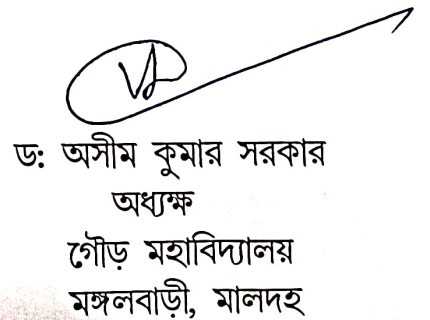 ড: অসীম কুমার সরকার
অধ্যক্ষ
গৌড় মহাবিদ্যালয়
মঙ্গলবাড়ী, মালদহ